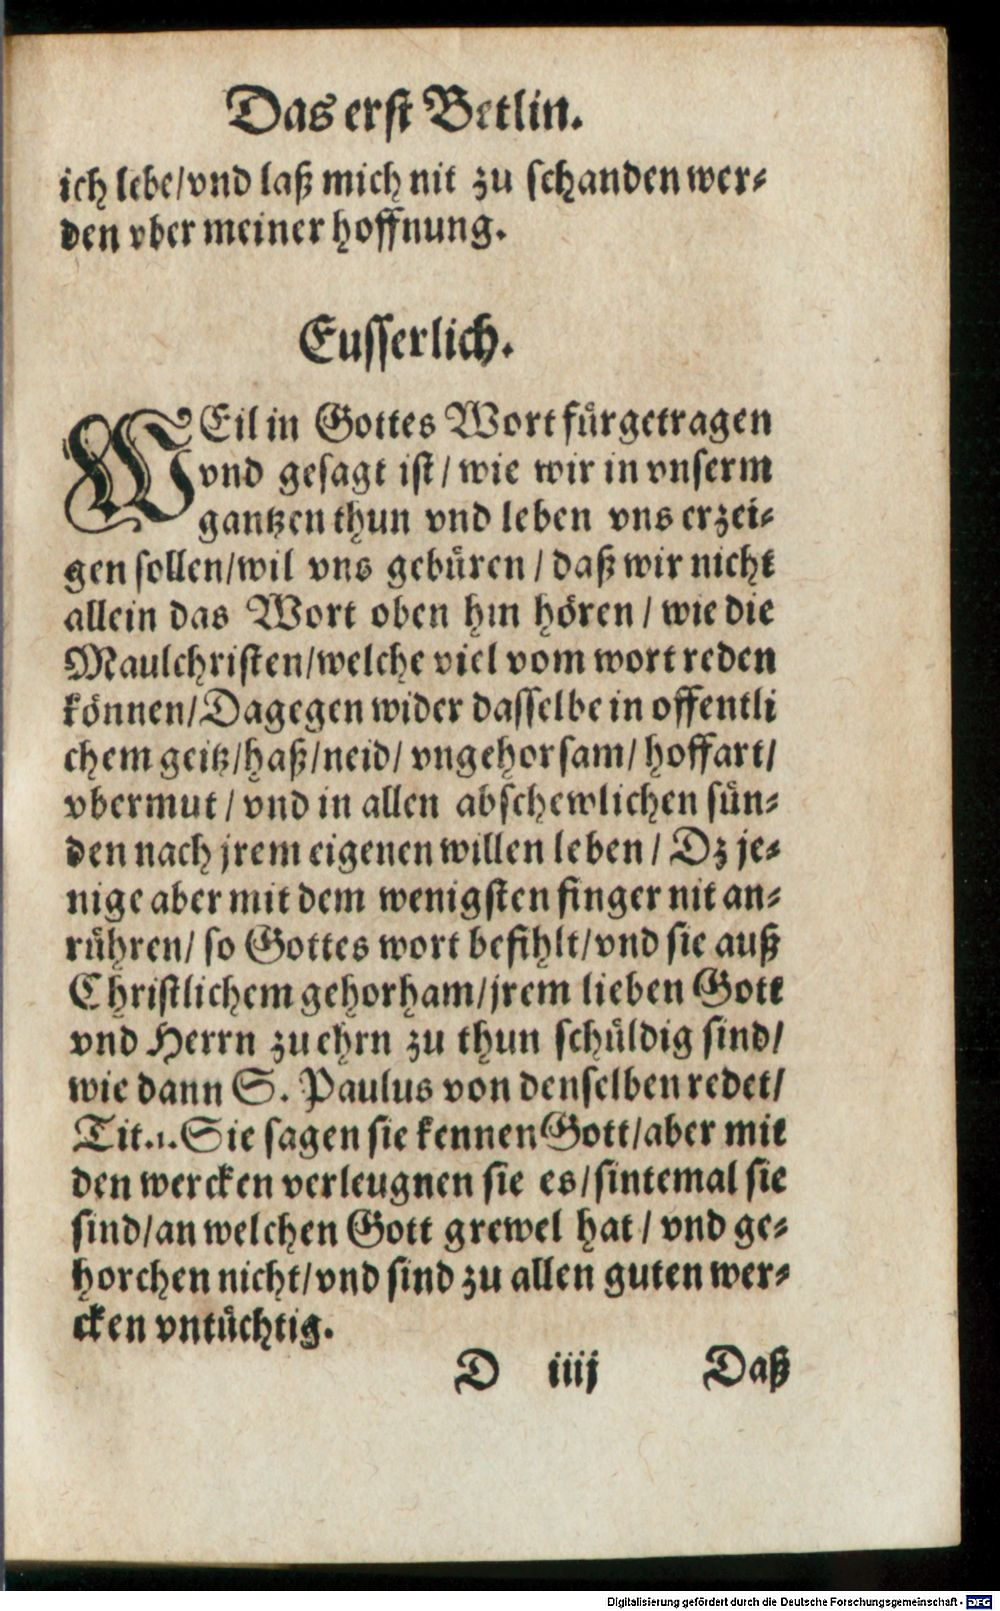 Das erst Betlin.
ich lebe/vnd laß mich nit zu schanden wer-
den vber meiner hoffnung.
Eusserlich.
WEil in Gottes Wort fürgetragen
vnd gesagt ist/ wie wir in vnserm
gantzen thun vnd leben vns erzei-
gen sollen/wil vns gebüren/ daß wir nicht
allein das Wort oben hin hören/ wie die
Maulchristen/welche viel vom wort reden
können/Dagegen wider dasselbe in offentli
chem geitz/haß/neid/ vngehorsam/ hoffart/
vbermut/ vnd in allen abschewlichen sün-
den nach jrem eigenen willen leben/ Dz je-
nige aber mit dem wenigsten finger nit an-
rühren/ so Gottes wort befihlt/vnd sie auß
Christlichem gehorham/jrem lieben Gott
vnd Herrn zu ehrn zu thun schüldig sind/
wie dann S. Paulus von denselben redet/
Tit.1. Sie sagen sie kennen Gott/aber mit
den wercken verleugnen sie es/sintemal sie
sind/an welchen Gott grewel hat/ vnd ge-
horchen nicht/vnd sind zu allen guten wer-
cken vntüchtig.
D iiij Daß
Digitalisierung gefördert durch die Deutsche Forschungsgemeinschaft - DFG